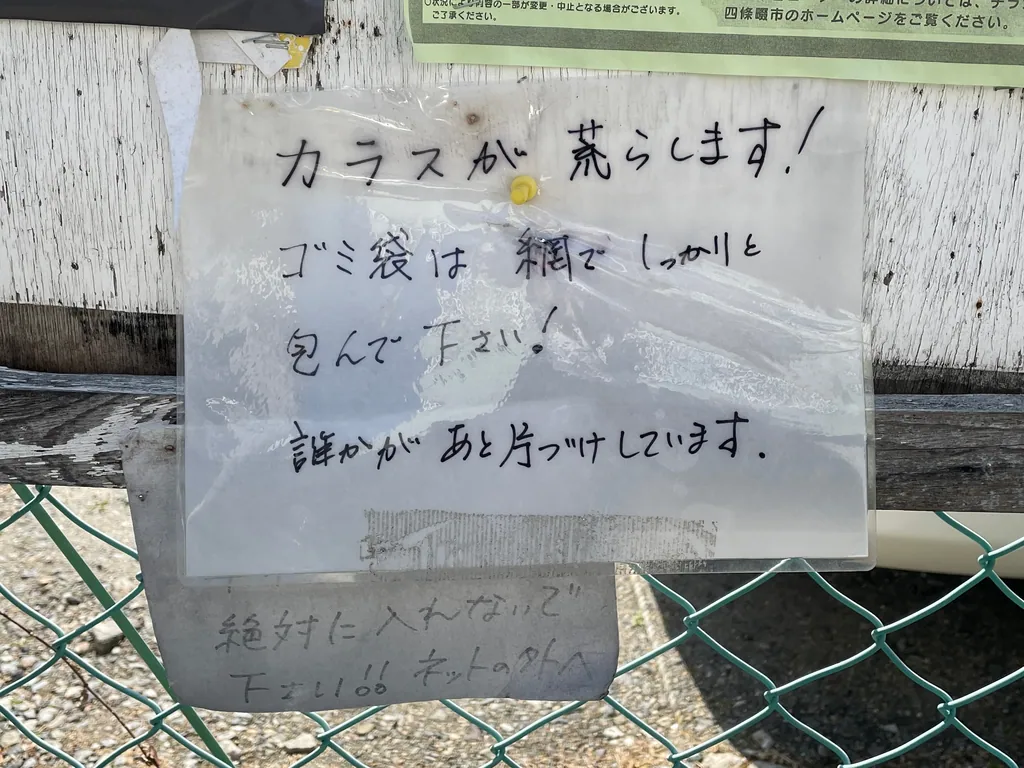 ○状況により内容の一部が変更・中止となる場合がございます。
ご了承ください。
四條畷市のホームページをご覧ください。
カラスが 荒らします!
ゴミ袋は 網で しっかりと
包んで 下さい!
誰かが あと片づけしています.
絶対に 入れないで
下さい!! ネットの外へ